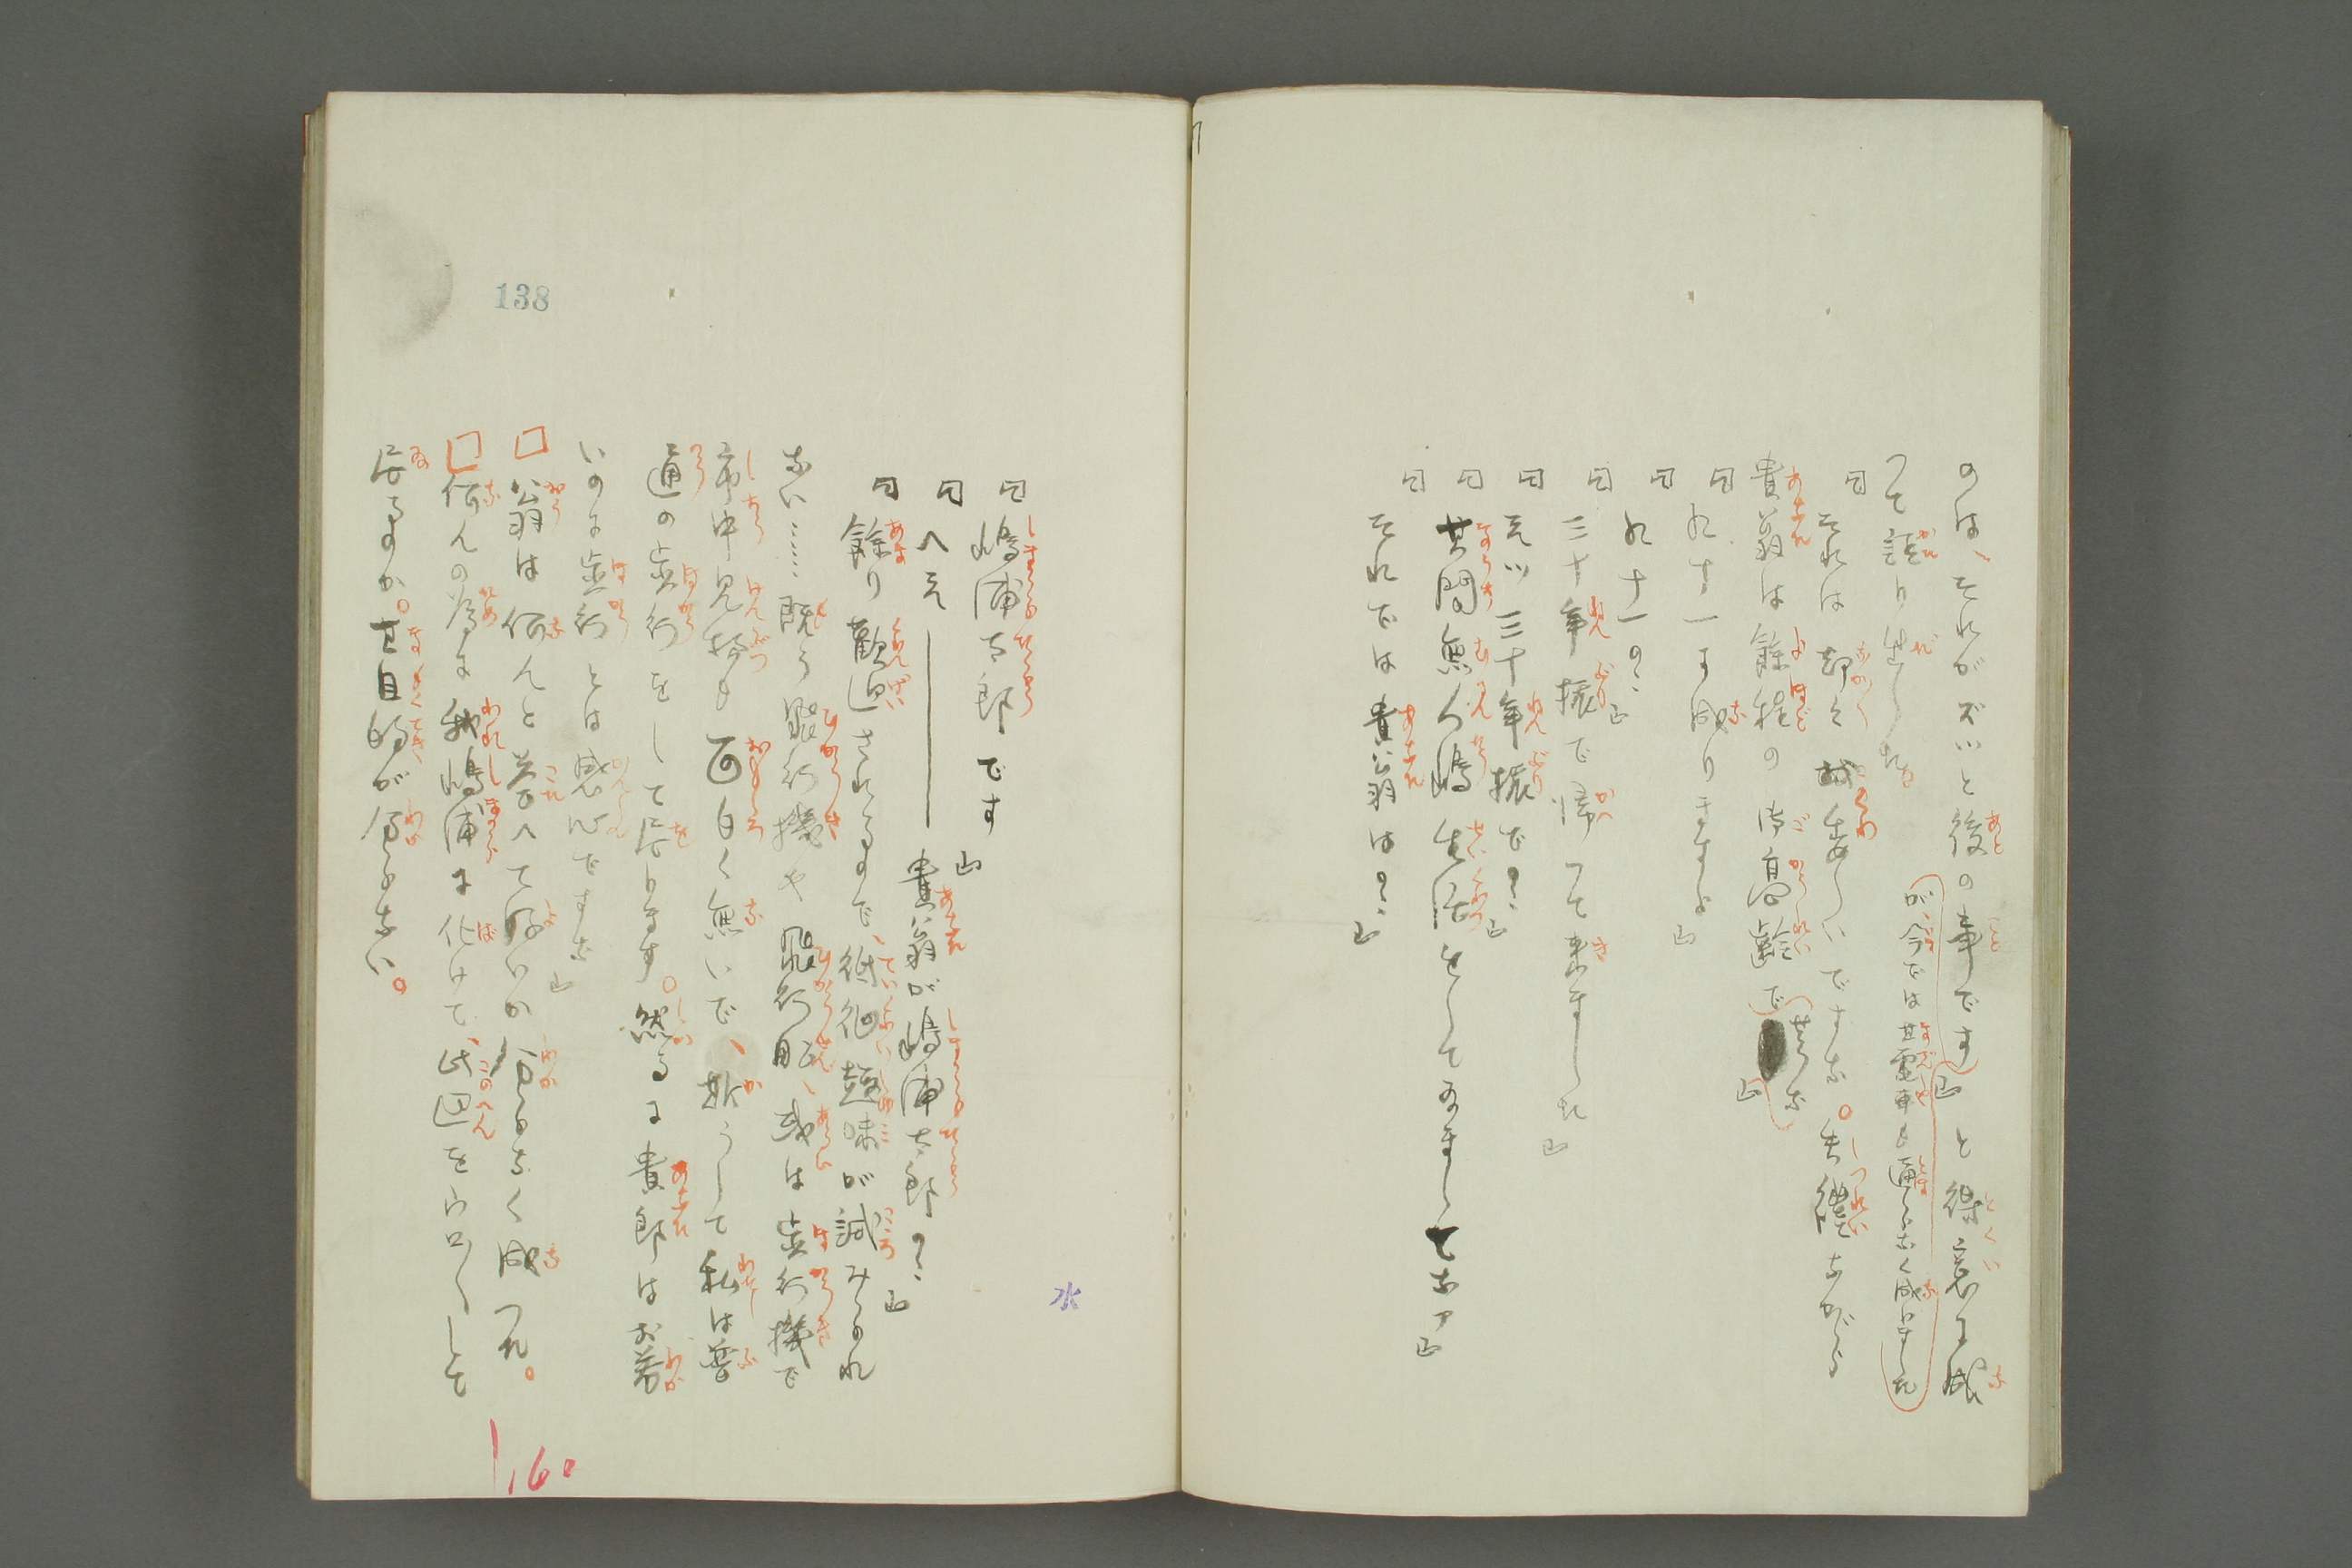 のは、それがズツと後の事です
が今では其電車も通らなく成ました」と得意に成
つて語り出した
「それは却々お委しいですな。失礼ながら
貴翁は余程の御高齢で
せうな」
「九十一に成りますよ」
「九十一？」
「三十年振で帰つて来ました」
「えッ三十年振で？」
「其間無人嶋生活をして居ましてなア」
「それでは貴翁は？」
「嶋浦太郎です」
「へえ――貴翁が嶋浦太郎？」
「余り歓迎されるので、低徊趣味が試みられ
ない……既う飛行機や飛行船、或は歩行機で
市中見物も面白く無いで、斯うして私は普
通の歩行をして居ります。然るに貴郎はお若
いのに歩行とは感心ですな」
翁は何んと答へて好いか分らなく成つた。
何んの為に我嶋浦に化けて、此辺をウロ〱して
居るのか。其目的が分らない。
138
160
水